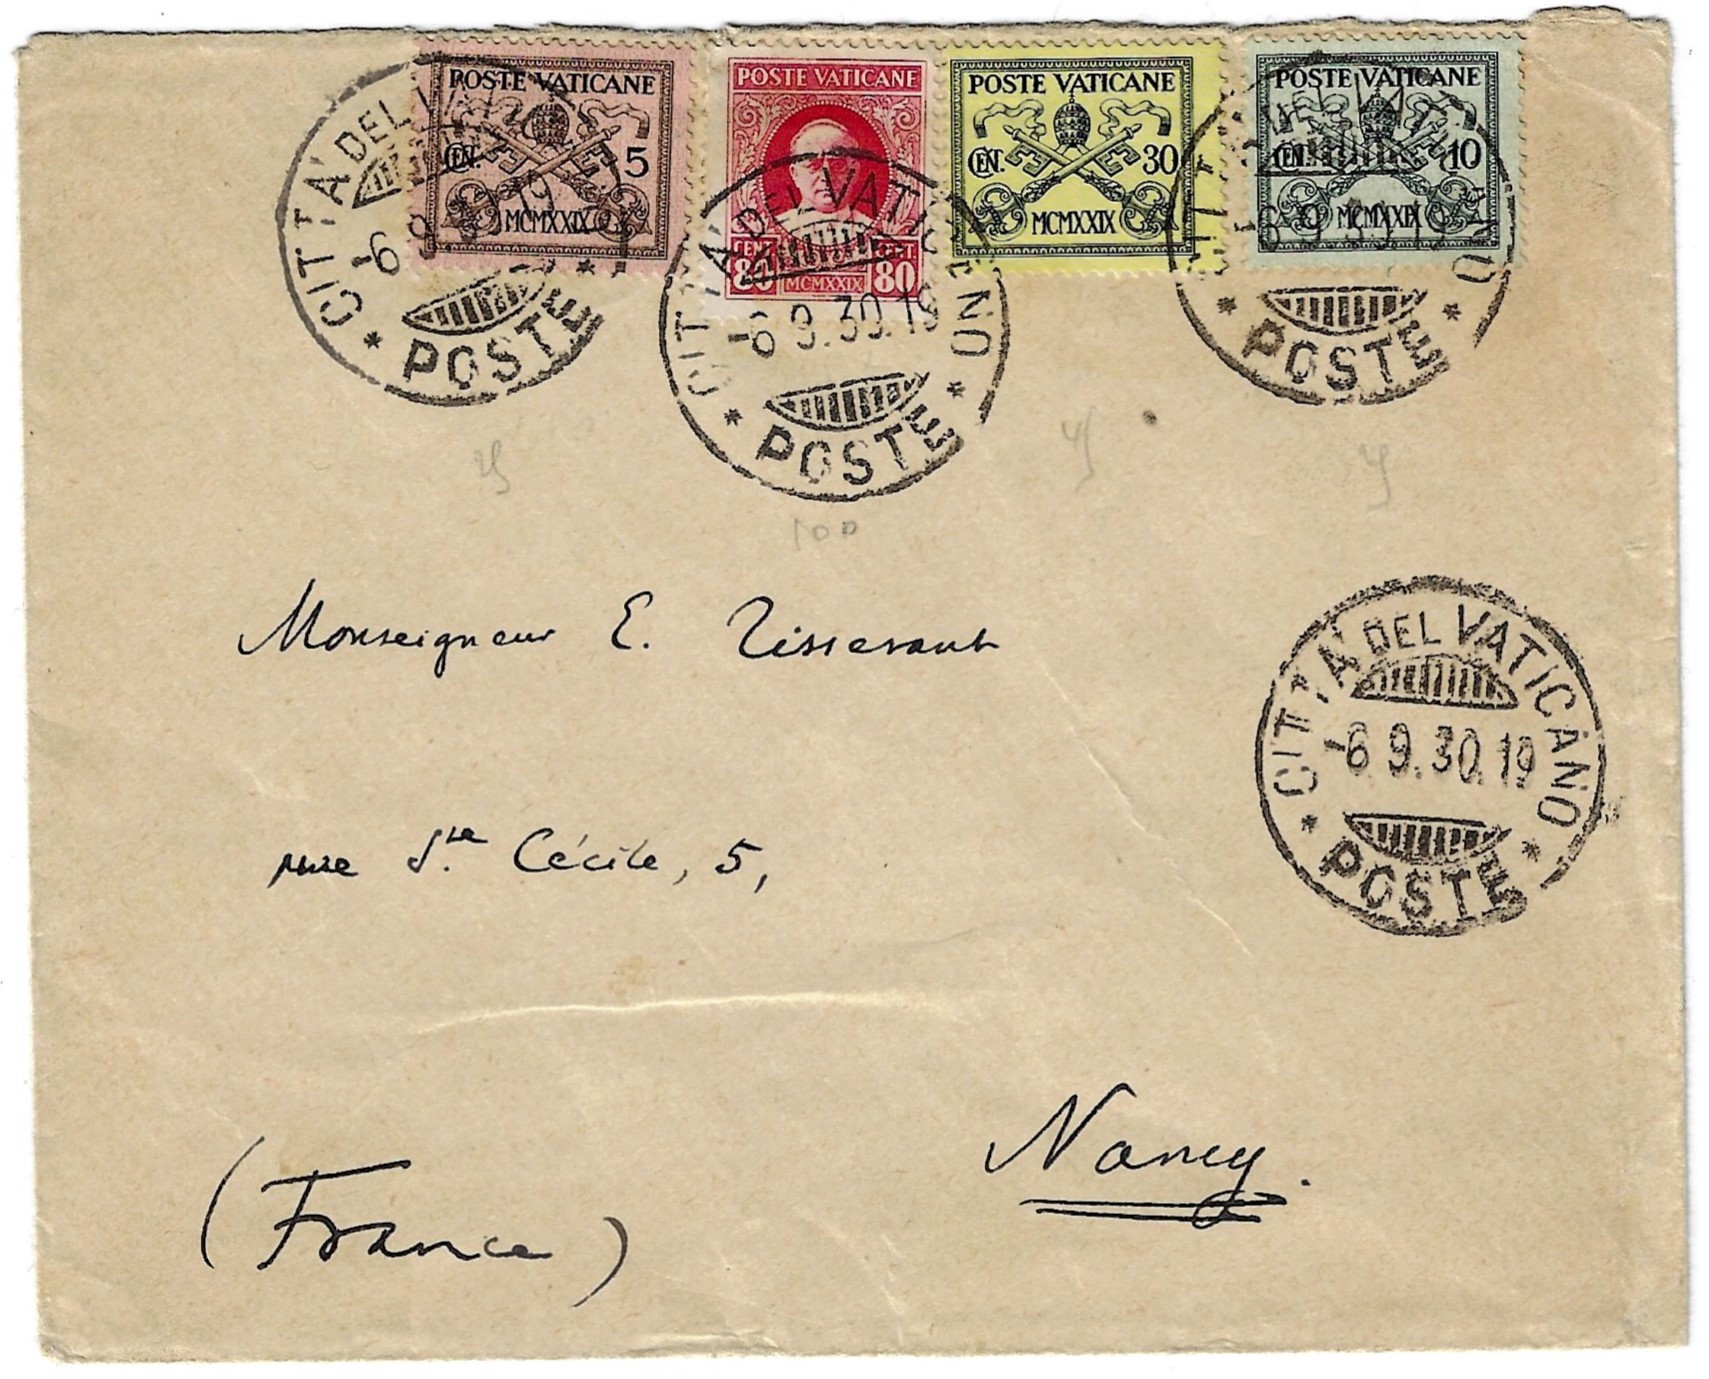 POSTE VATICANE
CEN. 5
MCMXXIX
POSTE VATICANE
CENT. 80 CENT. 80
MCMXXIX
POSTE VATICANE
CEN. 30
MCMXXIX
POSTE VATICANE
CEN. 10
MCMXXIX
* CITTA' DEL VATICANO *
-6 9.30.19
POSTE
* CITTA' DEL VATICANO *
-6 9.30.19
POSTE
* CITTA' DEL VATICANO *
-6 9.30.19
POSTE
100
Monseigneur E. Tisserant
* CITTA' DEL VATICANO *
-6 9.30.19
POSTE
rue Ste. Cécile, 5,
Nancy.
(France)